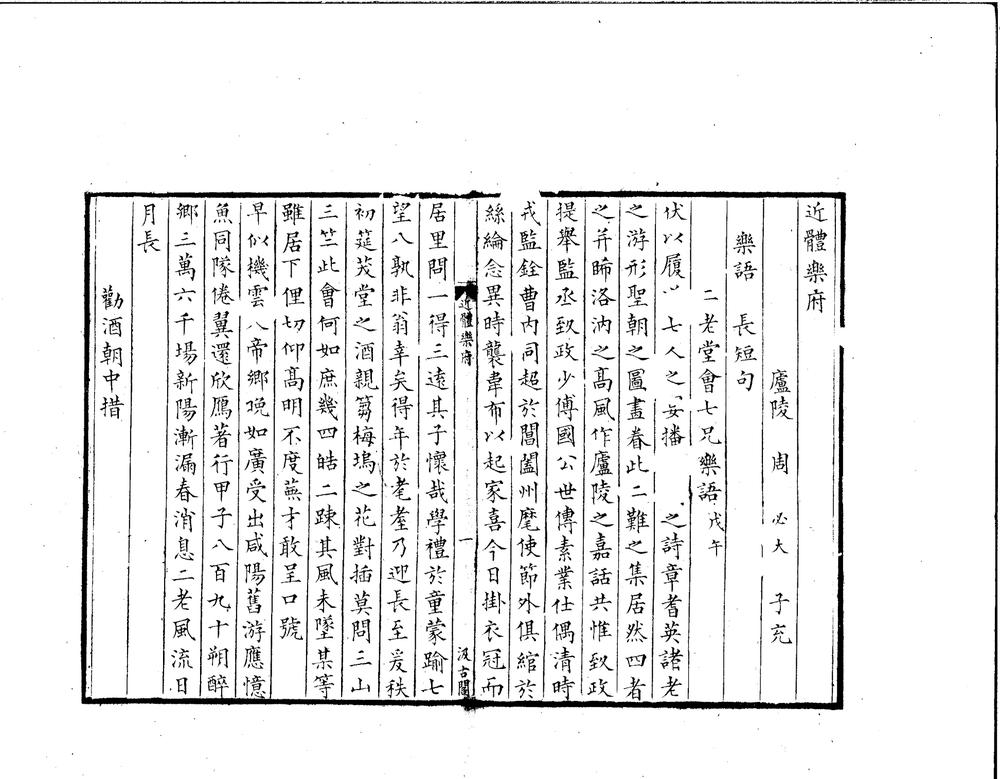 近體樂府
廬陵 周 必大 子充
樂語 長短句
二老堂會七兄樂語戊午
伏以履 七人之 安播 之詩章耆英諸老
之游形聖朝之圖畫眷此二難之集居然四者
之并晞洛汭之高風作廬陵之嘉話共惟致政
提舉監丞致政少傅國公世傳素業仕偶清時
戎監銓曹內同超於閶闔州麾使節外俱綰於
絲綸念異時襲韋布以起家喜今日掛衣冠而
近體樂府 一 汲古閣
居里問一得三遠其子懷哉學禮於童蒙踰七
望八孰非翁幸矣得年於耄耋乃迎長至爰秩
初筵茂堂之酒親篘梅塢之花對插莫問三山
三竺此會何如庶幾四皓二疎其風未墜某等
雖居下俚切仰高明不度蕪才敢呈口號
早似機雲入帝鄉晚如廣受出咸陽舊游應憶
魚同隊倦翼還欣鴈著行甲子八百九十朔醉
鄉三萬六千場新陽漸漏春消息二老風流日
月長
勸酒朝中措